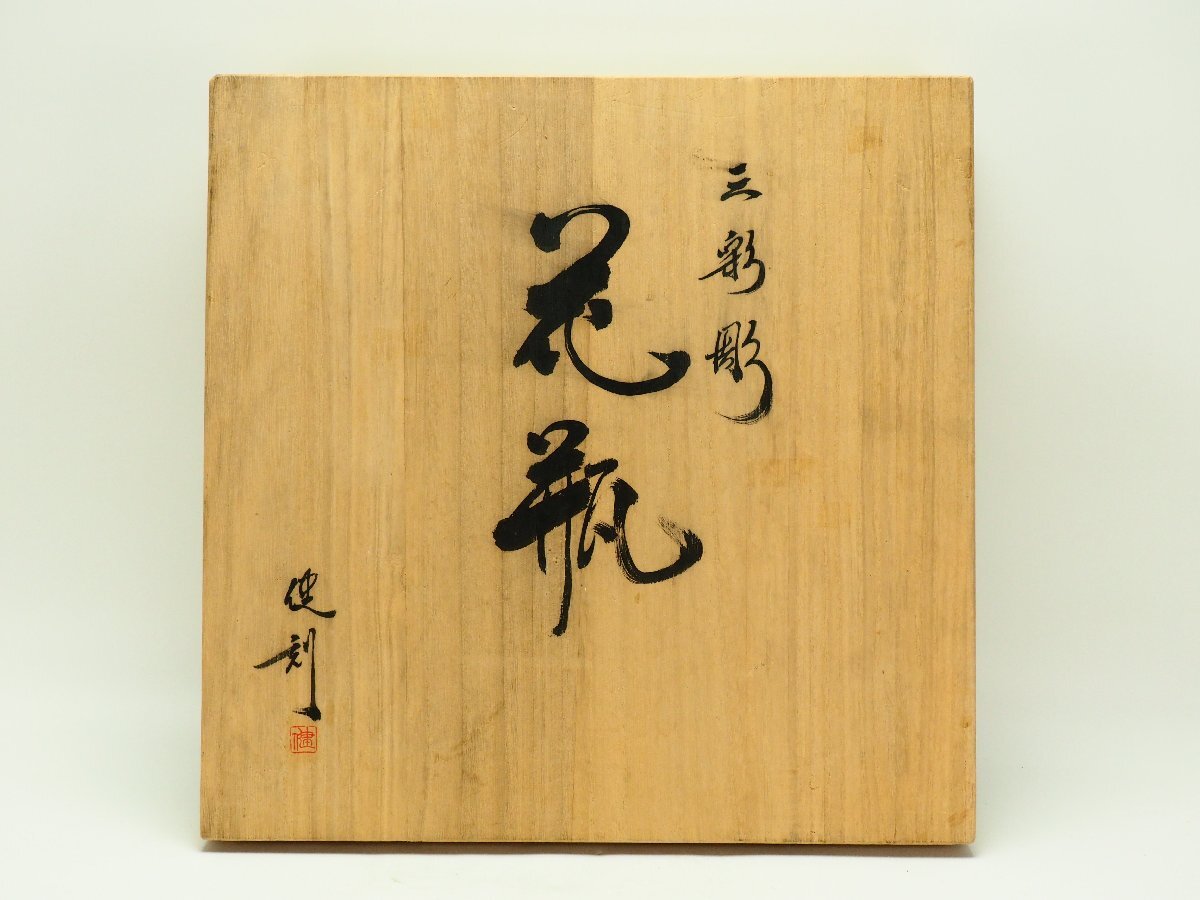 三彩彫
花瓶
健刻
健